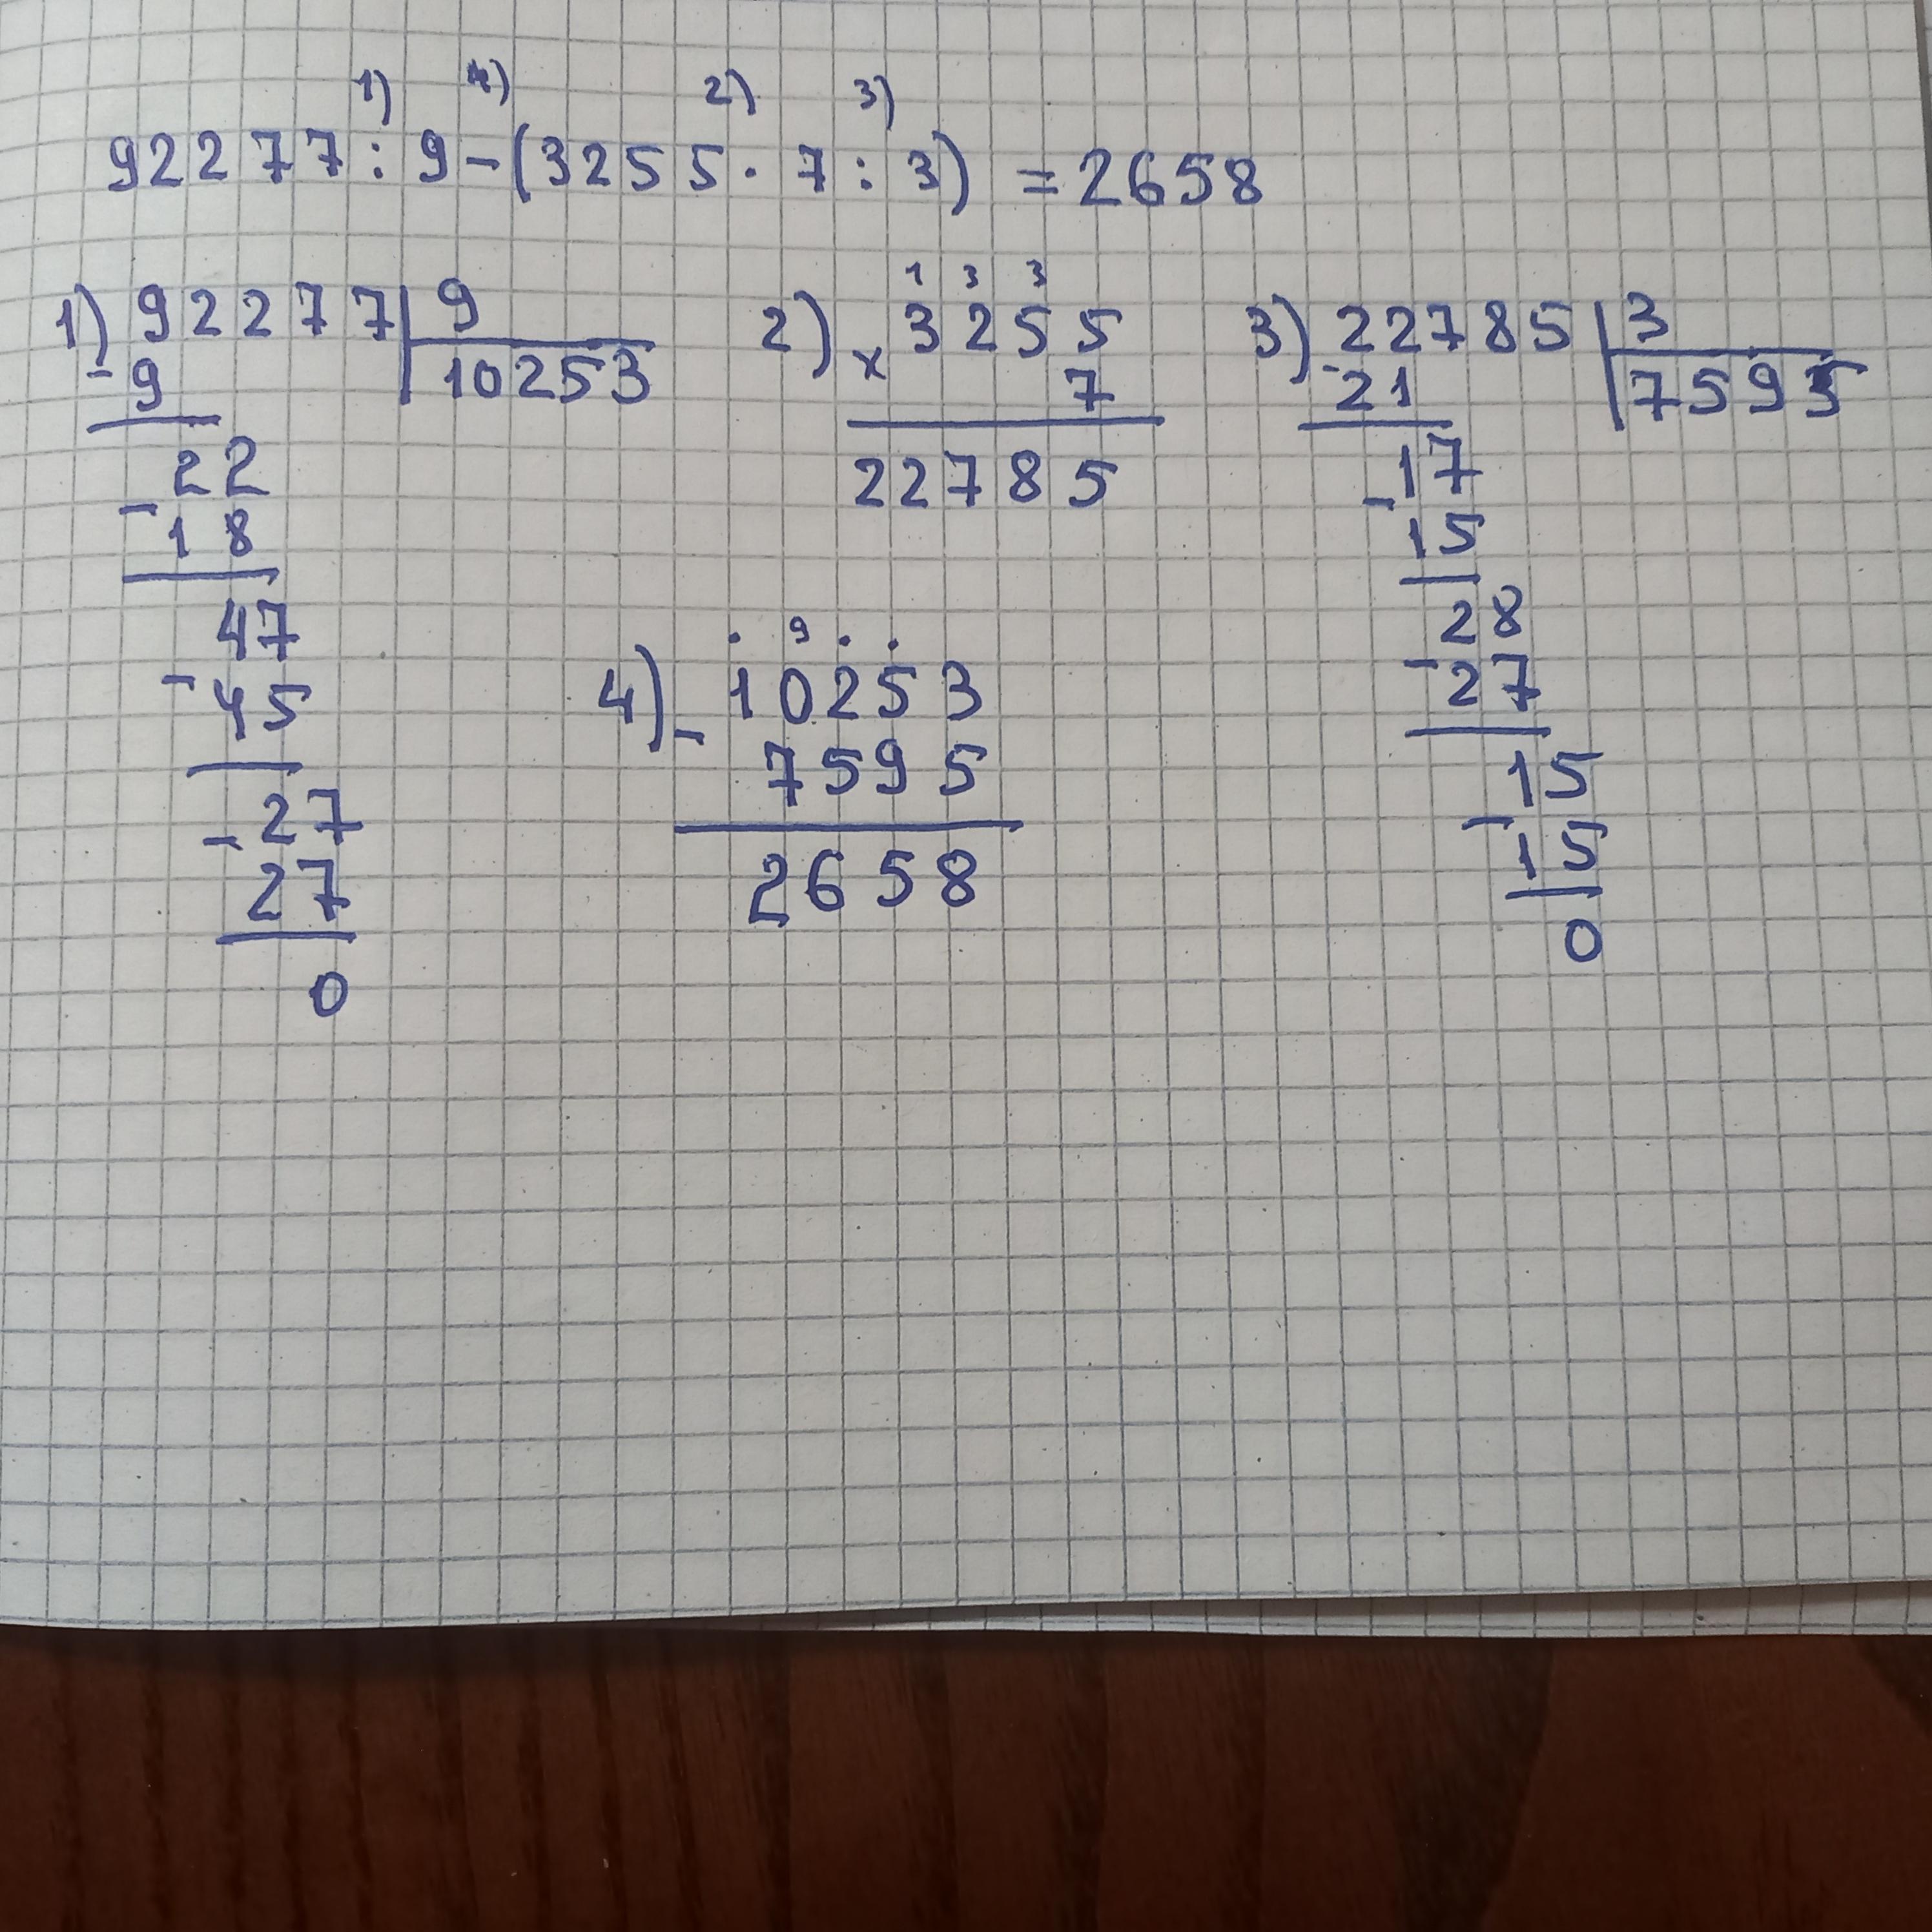 1) 4) 2) 3)
92277 : 9 - (3255 · 7 : 3) = 2658
1) 92277 9
- 9 10253
22
- 18
47
- 45
- 27
27
0
2) 1 3 3
x 3255
7
22785
3) 22785 3
- 21 7595
- 17
15
28
- 27
- 15
15
0
. 9 . .
4) - 10253
7595
2658